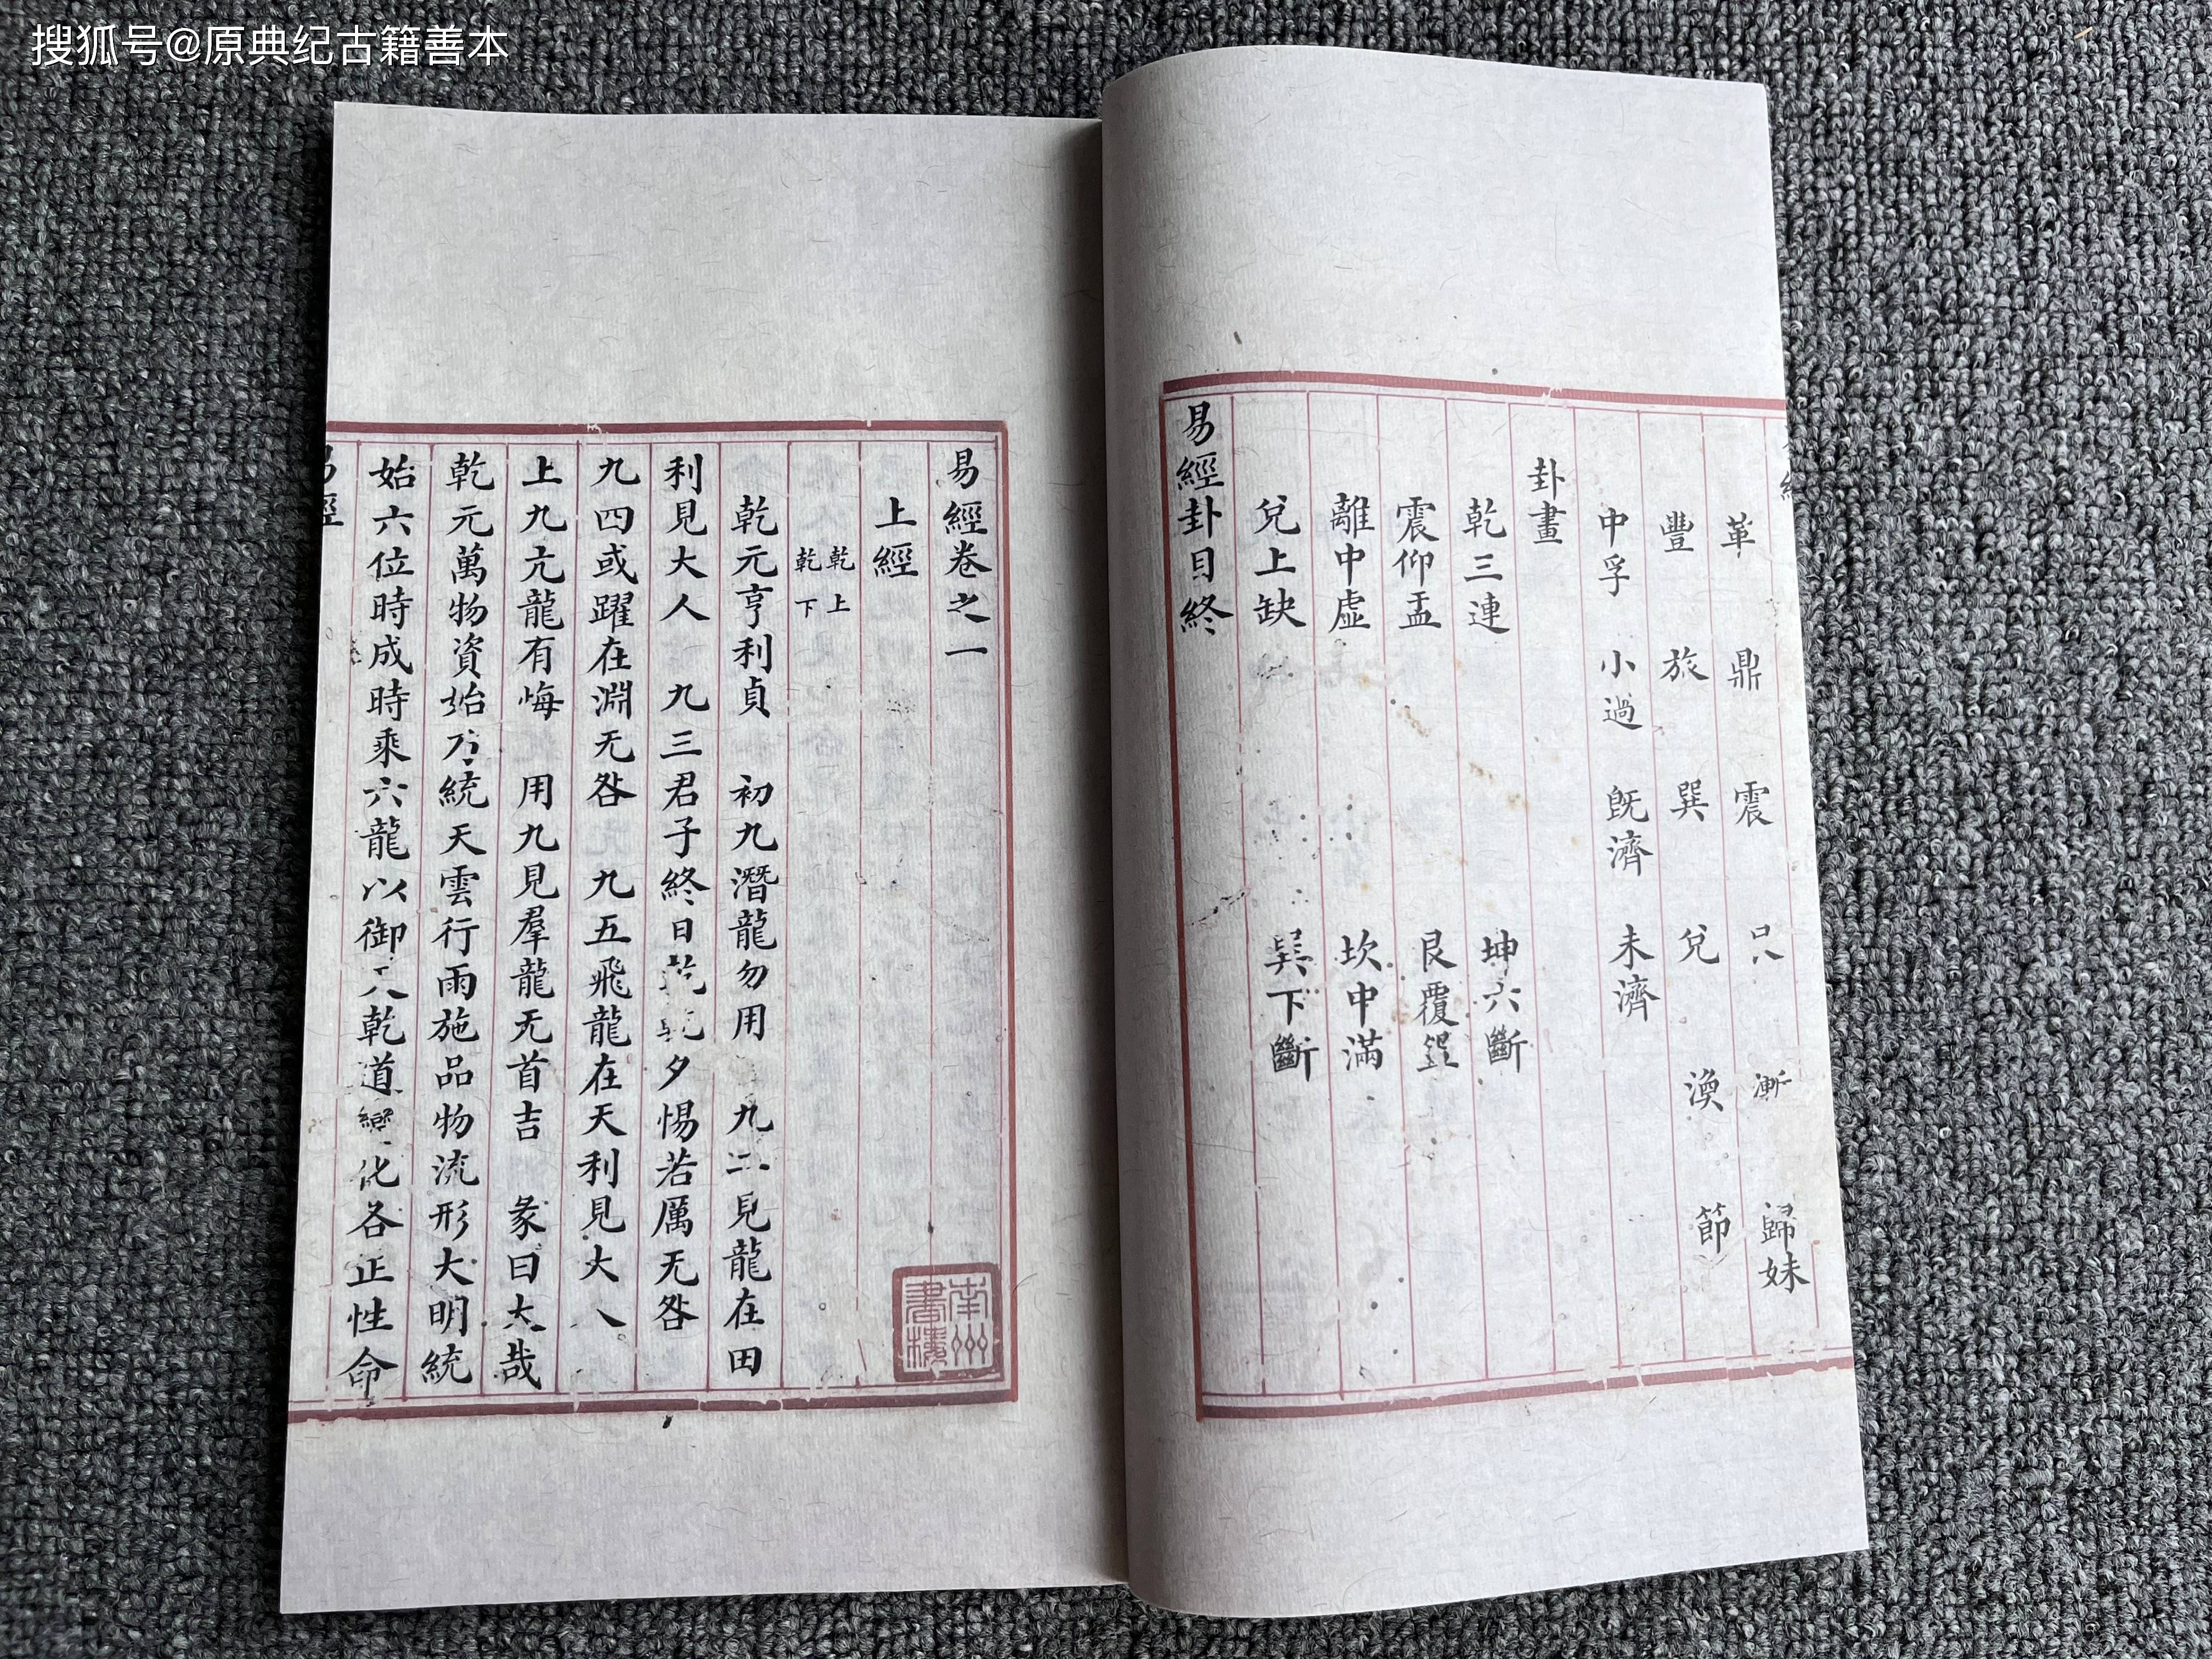 搜狐号@原典纪古籍善本
革 鼎 震 漸 歸妹
豐 旅 巽 兌 渙 節
中孚 小過 旣濟 未濟
卦畫
乾三連 坤六斷
震仰盂 艮覆
離中虛 坎中滿
兌上缺 巽下斷
易經卦目終
易經卷之一
上經
乾上
乾下
乾元亨利貞 初九潛龍勿用 九二見龍在田
利見大人 九三君子終日乾乾夕惕若厲无咎
九四或躍在淵无咎 九五飛龍在天利見大人
上九亢龍有悔 用九見羣龍无首吉 彖曰大哉
乾元萬物資始乃統天雲行雨施品物流形大明統
始六位時成時乘六龍以御天乾道變化各正性命
易經
南州
書樓